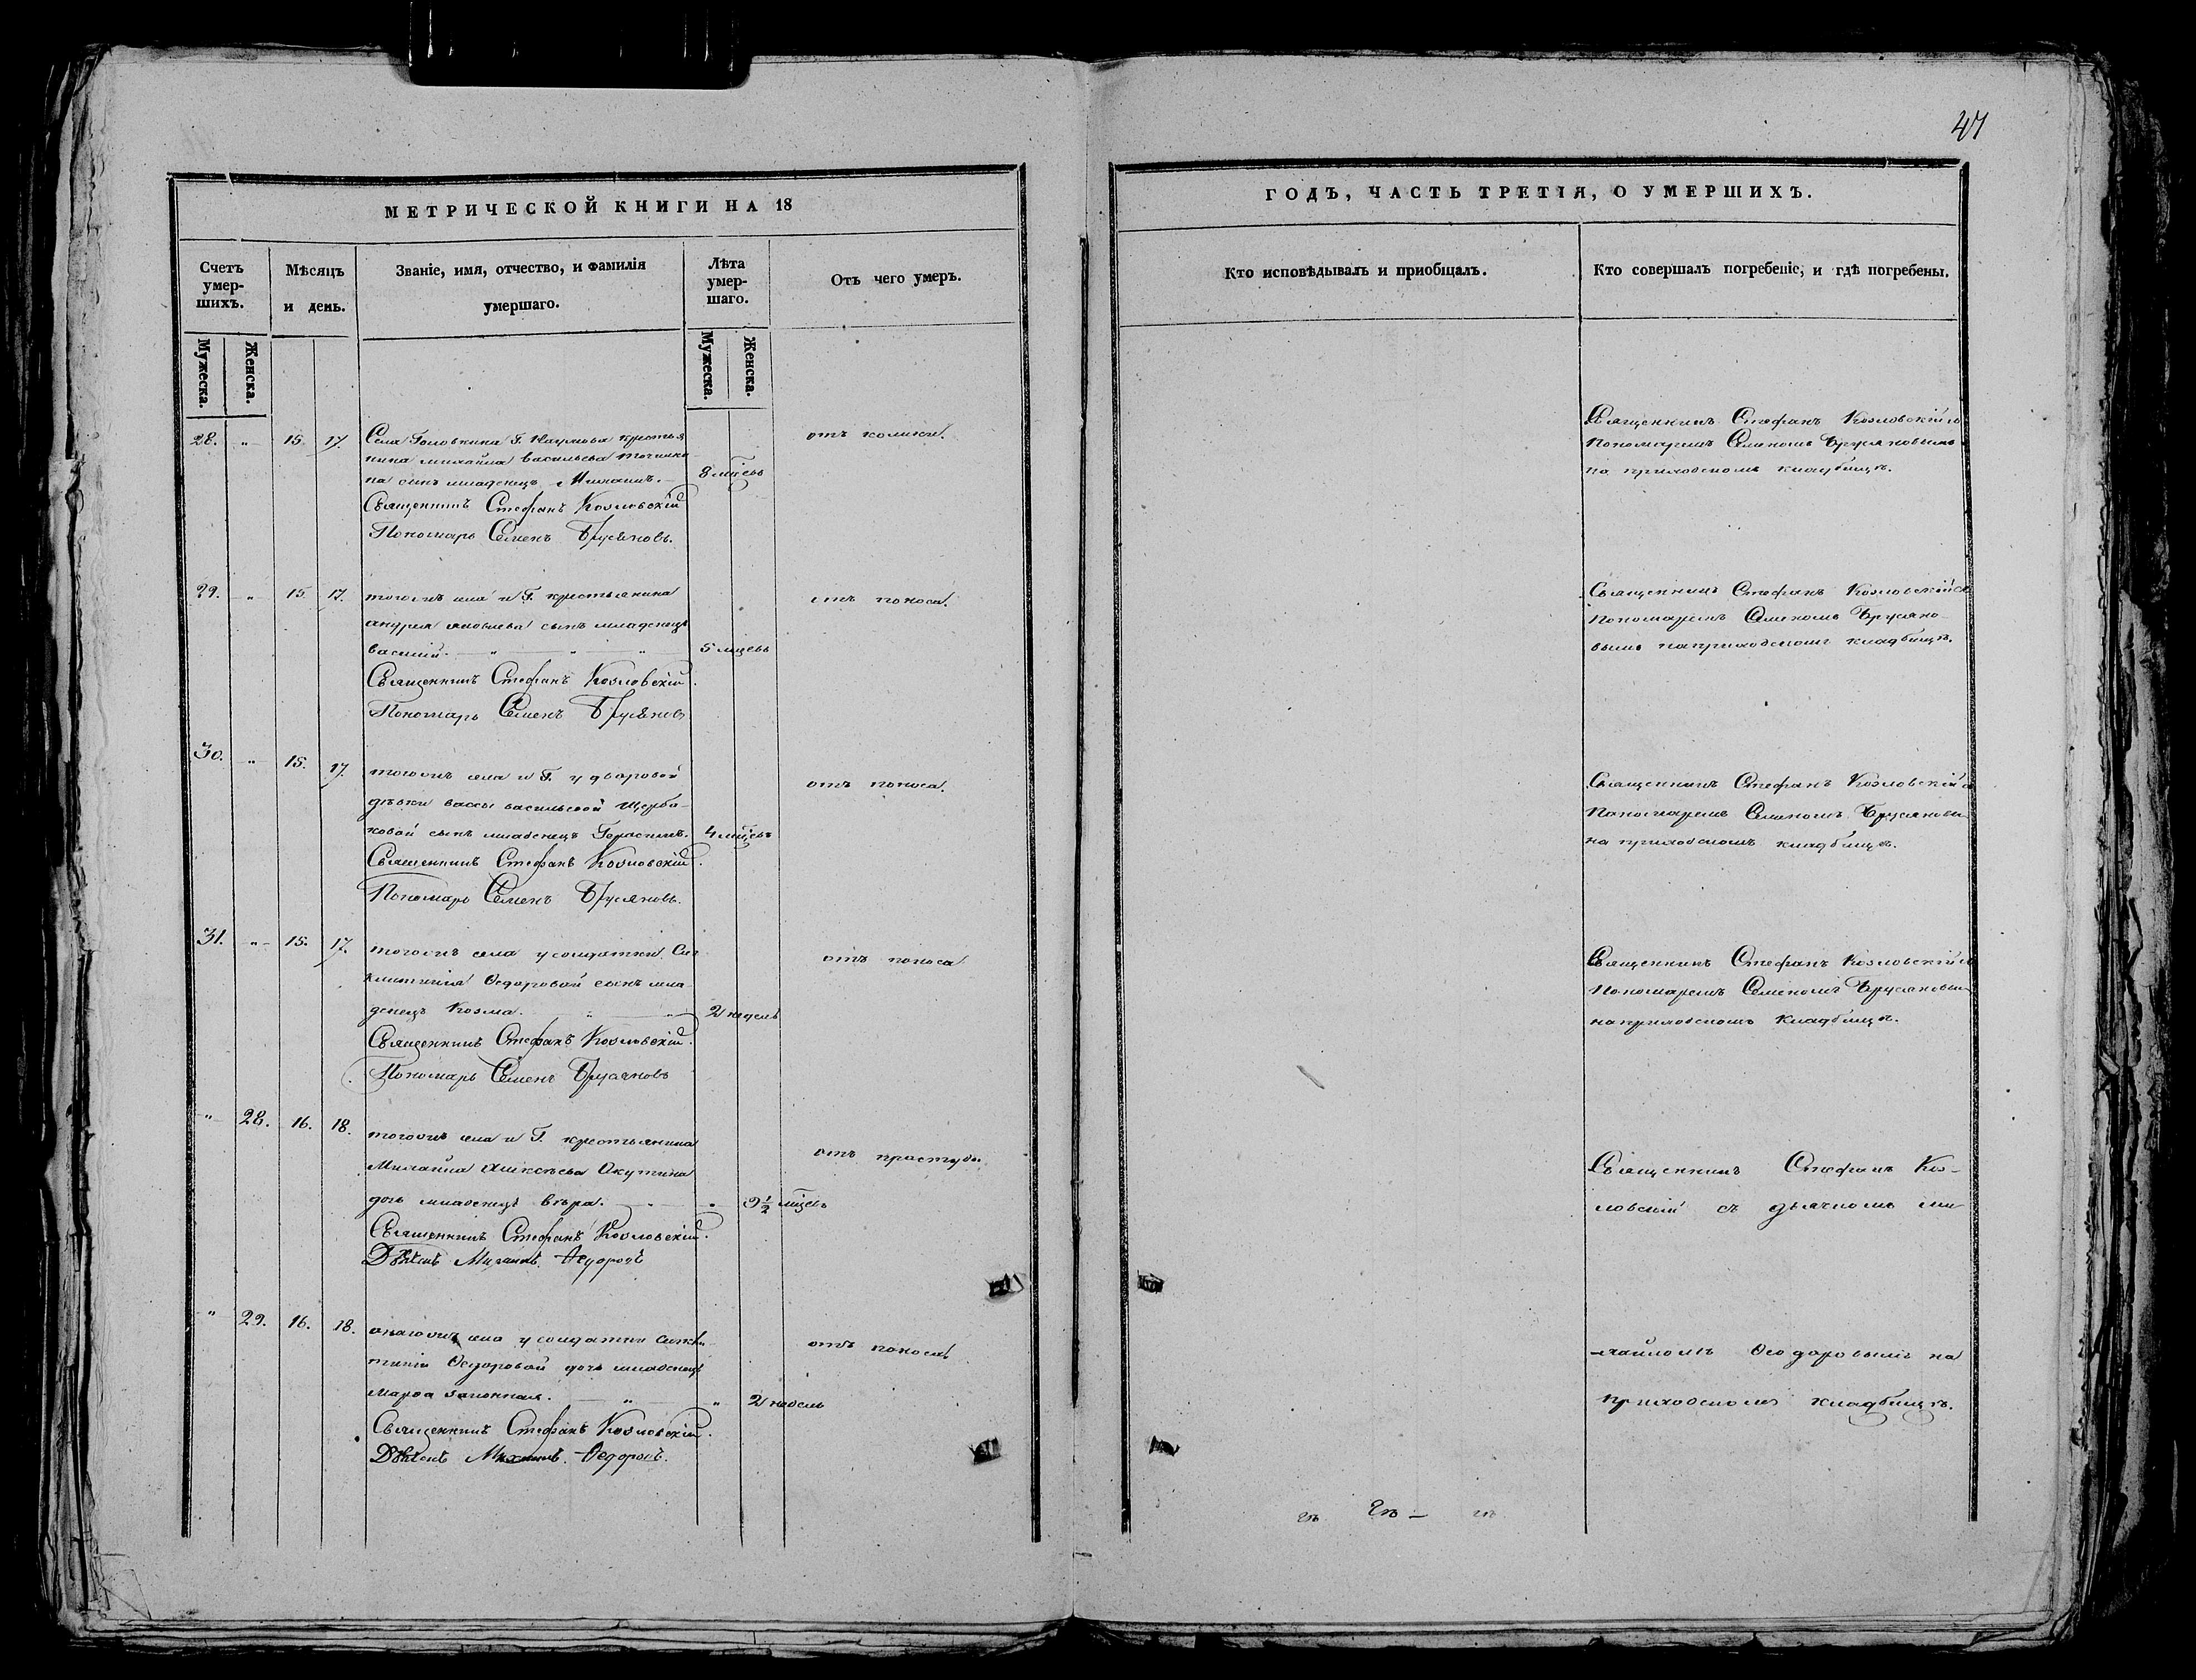 47
МЕТРИЧЕСКОЙ КНИГИ НА 18
Счетъ умер-шихъ.
Мѣсяцъ и день.
Званіе, имя, отчество, и фамилія умершаго.
Лѣта умер-шаго.
Отъ чего умеръ.
Мужеска.
Женска.
Мужеска.
Женска.
28. " 15. 17. Села Головкина Г. Наумова крестья
нина михайла васильева
на сынъ младенецъ Михаилъ. 8 мцевъ
отъ колики.
Священникъ Стефанъ Козловскій
Пономарь Семенъ Брусяновъ.
29. " 15. 17. тогожъ села и Г. крестьянина
андрея яковлева сынъ младенецъ
василій. " " " 5 мцевъ
отъ поноса.
Священникъ Стефанъ Козловскій.
Пономарь Семенъ Брусяновъ
30. " 15. 17. тогожъ села и Г. у дворовой
дѣвки вассы васильевой Щерба-
ковой сынъ младенецъ Герасимъ. 4 мцевъ
отъ поноса.
Священникъ Стефанъ Козловскій.
Пономарь Семенъ Брусяновъ.
31. " 15. 17. тогожъ села у солдатки Син
клитикіи Ѳедоровой сынъ мла
денецъ Козма. " " 2 недель
отъ поноса.
Священникъ Стефанъ Козловскій.
Пономарь Семенъ Брусяновъ
" 28. 16. 18. тогожъ села и Г. крестьянина
Михайла Алексѣева Окутина
дочь младенецъ вѣра. " 9 1/2 мцевъ
отъ простуды
Священникъ Стефанъ Козловскій.
Михаилъ Ѳедоровъ
" 29. 16. 18. онагожъ села у солдатки Синкли
тикіи Ѳедоровой дочь младенецъ
Марѳа законная. " " 2 недель
отъ поноса
Священникъ Стефанъ Козловскій.
Михаилъ Ѳедоровъ.
ГОДЪ, ЧАСТЬ ТРЕТІЯ, О УМЕРШИХЪ.
Кто исповѣдывалъ и пріобщалъ.
Кто совершалъ погребеніе, и гдѣ погребены.
Священникъ Стефанъ Козловскій съ
Пономаремъ Семеномъ Брусяновымъ
на приходскомъ кладбищѣ.
Священникъ Стефанъ Козловскій съ
Пономаремъ Семеномъ Брусяно-
вымъ на приходскомъ кладбищѣ.
Священникъ Стефанъ Козловскій с
Пономаремъ Семеномъ Брусяновы
на приходскомъ кладбищѣ.
Священникъ Стефанъ Козловскій съ
Пономаремъ Семеномъ Брусяновы
на приходскомъ Кладбищѣ.
Священникъ Стефанъ Коз-
ловскій съ дьячкомъ ми
хайломъ Ѳеодоровымъ на
приходскомъ кладбищѣ.